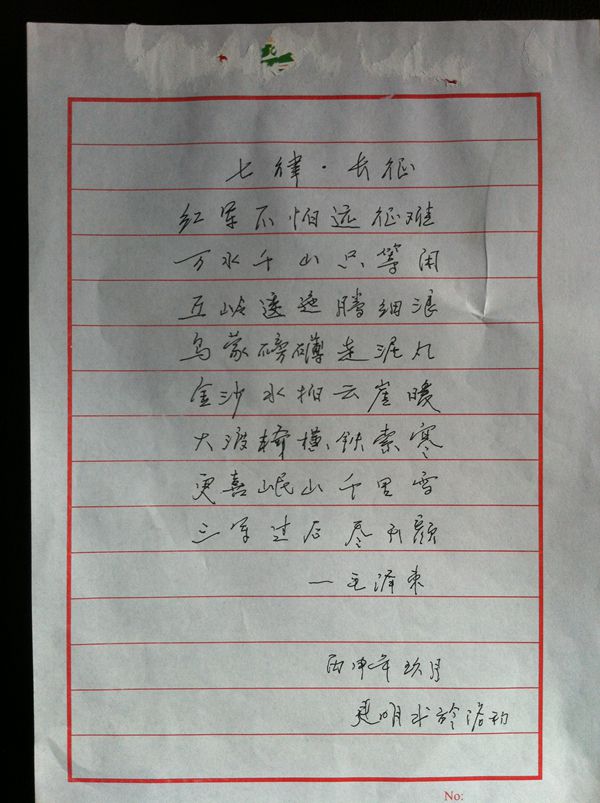 七律·长征
红军不怕远征难
万水千山只等闲
五岭逶迤腾细浪
乌蒙磅礴走泥丸
金沙水拍云崖暖
大渡桥横铁索寒
更喜岷山千里雪
三军过后尽开颜
—毛泽东
丙申年玖月
明书於洛
No: